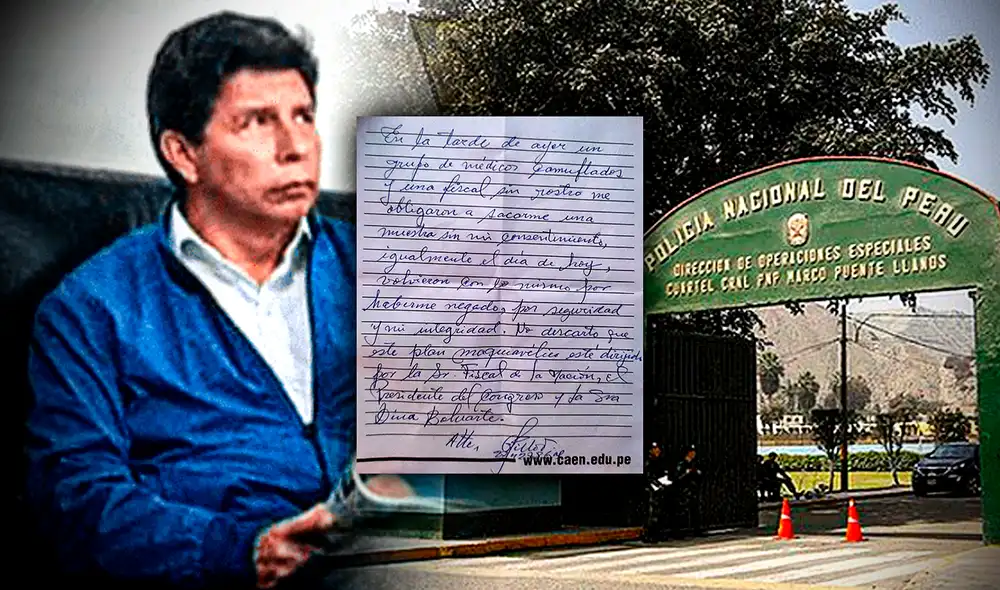 En la tarde de ayer un
grupo de médicos camuflados
y una fiscal sin rostro me
obligaron a sacarme una
muestra sin mi consentimiento,
igualmente el día de hoy,
volvieron con lo mismo por
haberme negado, por seguridad
y mi integridad. No descarto que
este plan maquiavélico esté dirigido
por la Sr. Fiscal de la Nación, el
Presidente del Congreso y la Sra
Dina Boluarte.
Atte,
www.caen.edu.pe
POLICIA NACIONAL DEL PERU
DIRECCION DE OPERACIONES ESPECIALES
CUARTEL CRNL PNP MARCO PUENTE LLANOS